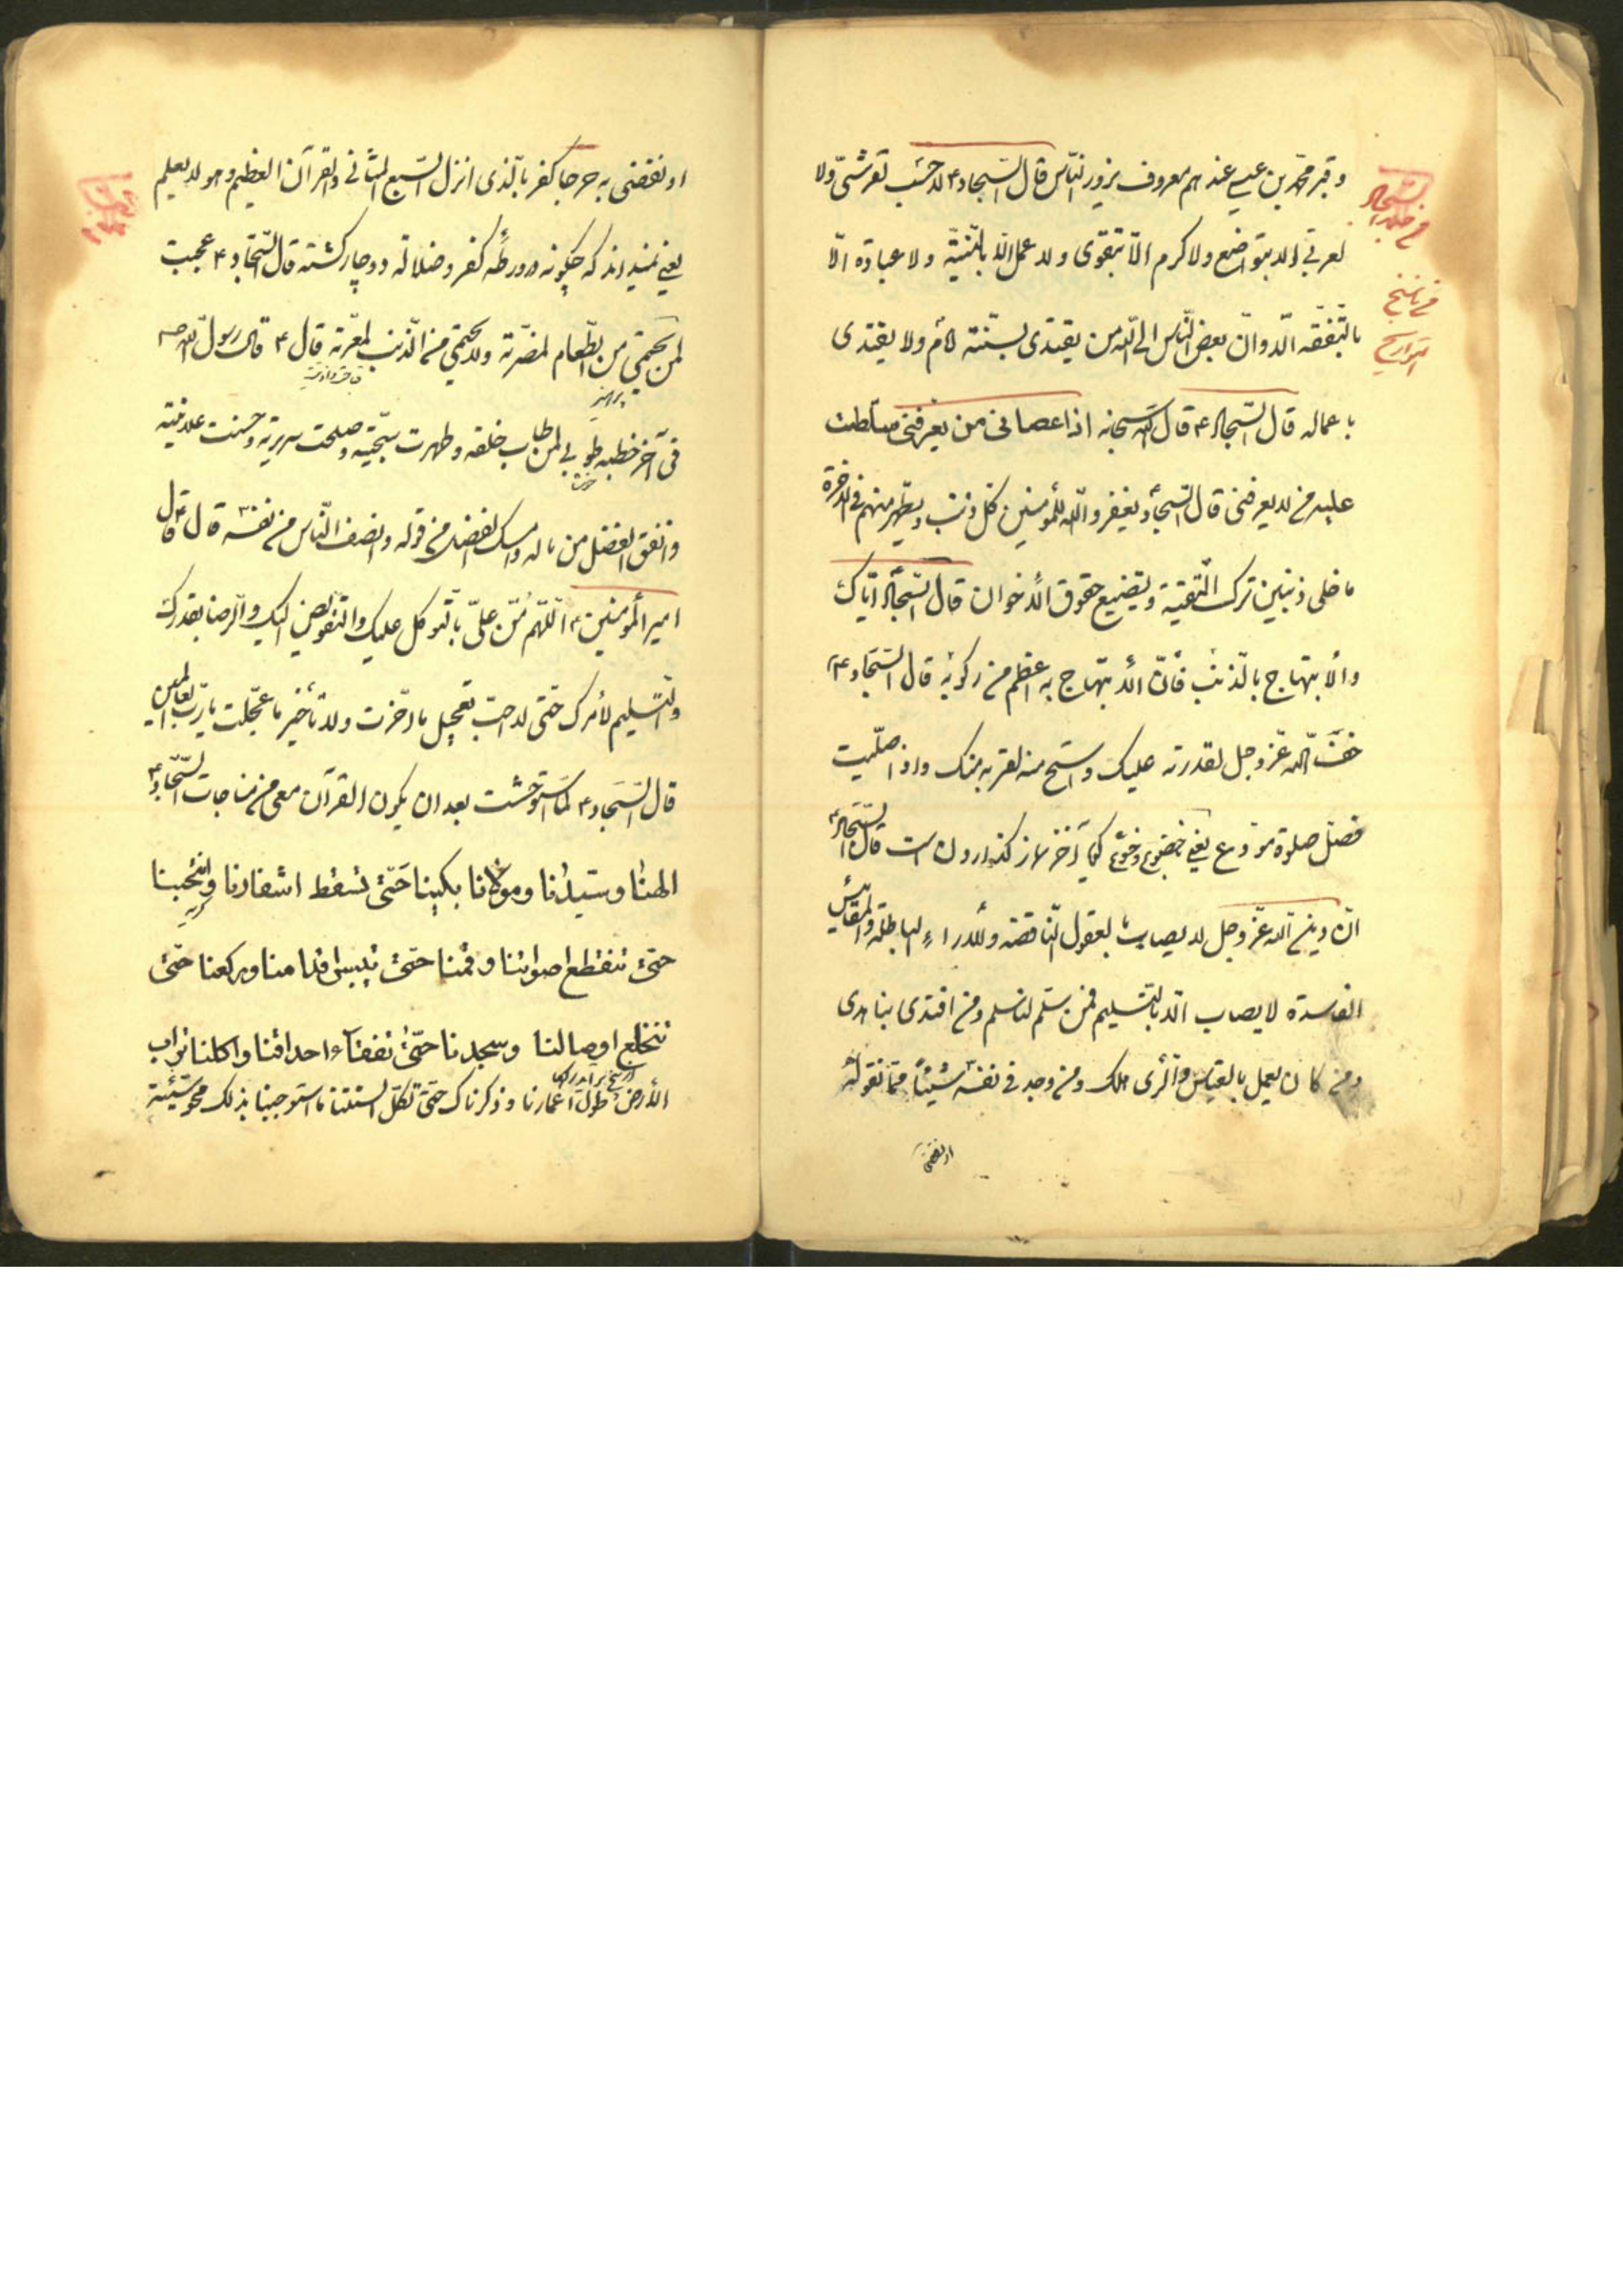 وقبر محمّد بن عيسى عندهم معروف يزوره النّاس قال السّجاد ع لا حسب لقرشىّ ولا
لعربى الا بتواضع ولا كرم الّا بتقوى ولا عمل الّا بالنّيّة ولا عبادة الّا
بالتّفقّه الا وانّ ابغض النّاس الى اللّه من يقتدى بسنّة امام ولا يقتدى
باعماله قال السّجاد ع قال اللّه سبحانه اذا عصانى من يعرفنى سلّطت
عليه من لا يعرفنى قال السّجاد يغفر اللّه للمؤمنين كل ذنب ويطهر منهم فى الاخرة
ما خلى ذنبين ترك التّقية وتضييع حقوق الأخوان قال السّجاد ايّاك
والابتهاج بالذّنب فأنّ الأبتهاج به اعظم من ركوبه قال السّجاد ع
خف اللّه عزّوجل لقدرته عليك واستح منه لقربه منك واذا صلّيت
فصلّ صلوة مودّع يعنى بخضوع وخشوع كه كويا آخر نماز كذاردن است قال السّجاد ع
انّ دين اللّه عزّوجل لا يصاب بالعقول النّاقصة والأراء الباطلة والمقائيس
الفاسدة لا يصاب الّا بالتّسليم فمن سلّم لنا سلم ومن اقتدى بنا هدى
ومن كان يعمل بالقياس والرّأى هلك ومن وجد فى نفسه شيئاً ممّا نقوله
او نقضى
السّجاد
فى ناسخ
التواريخ
او نقضى به حرجا كفر بالّذى انزل السّبع المثانى والقرآن العظيم وهو لا يعلم
يعنى نميداند كه چكونه در ورطه كفر وضلالة دوچار كشته قال السّجاد ع عجبت
لمن يحتمى من الطّعام لمضرّته ولا يحتمى من الذّنب لمعرّته قال ع قال رسول اللّه ص
پرهيز
فى آخر خطبه طوبى لمن طاب خلقه وطهرت سجّيته وصلحت سريرته وحسنت علانيته
وانفق الفضل من ماله وامسك الفضل من قوله وانصف النّاس من نفسه قال ع قال
امير المؤمنين ع اللّهم منّ علىّ بالتّوكل عليك والتّفويض اليك والرّضا بقدرك
والتّسليم لأمرك حتّى لا احبّ تعجيل ما اخّرت ولا تأخير ما عجّلت يا ربّ العالمين
قال السّجاد ع لما استوحشت بعد ان يكون القرآن معى من مناجات السّجاد ع
الهنا وسيّدنا ومولانا بكينا حتّى تسقط اشفارنا وانتحبنا
كريه
حتّى تنقطع اصواتنا وقمنا حتّى تيبس اقدامنا وركعنا حتّى
تنخلع اوصالنا وسجدنا حتّى تتفقاء احداقنا واكلنا تراب
الأرض طول اعمارنا وذكرناك حتّى تكلّ السنتنا ما استوجبنا بذلك محو سيّئة